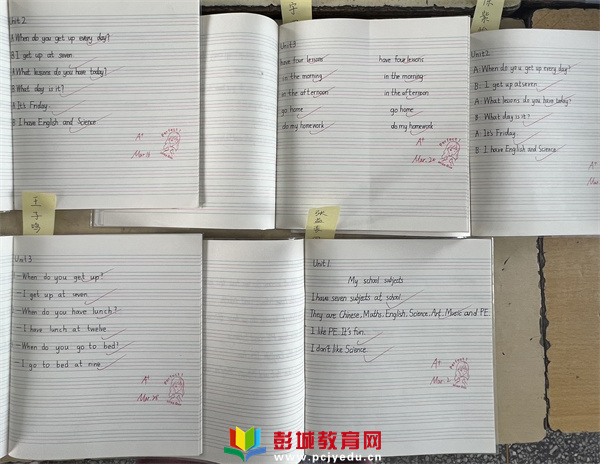 Unit 2
A When do you get up every day?
B I get up at seven
A What lessons do you have today?
B What day is it?
A It's Friday
B I have English and Science
A+
Mar. 13
Unit3
have four lessons
in the morning
in the afternoon
go home
do my homework
have four lessons
in the morning
in the afternoon
go home
do my homework
A+
Mar. 20
Unit2
A: When do you get up every day?
B: I get up at seven.
A: What lessons do you have today?
B: What day is it?
A: It's Friday.
B: I have English and Science.
王子鸣
Unit 3
—When do you get up?
—I get up at seven.
—When do you have lunch?
—I have lunch at twelve.
—When do you go to bed?
—I go to bed at nine.
A+
Mar. 28
Unit 1.
My school subjects
I have seven subjects at school.
They are Chinese, Maths, English, Science, Art, Music and PE.
I like PE. It's fun.
I don't like Science.
A+
Mar. 2
彭城教育网
www.pcjyedu.cn